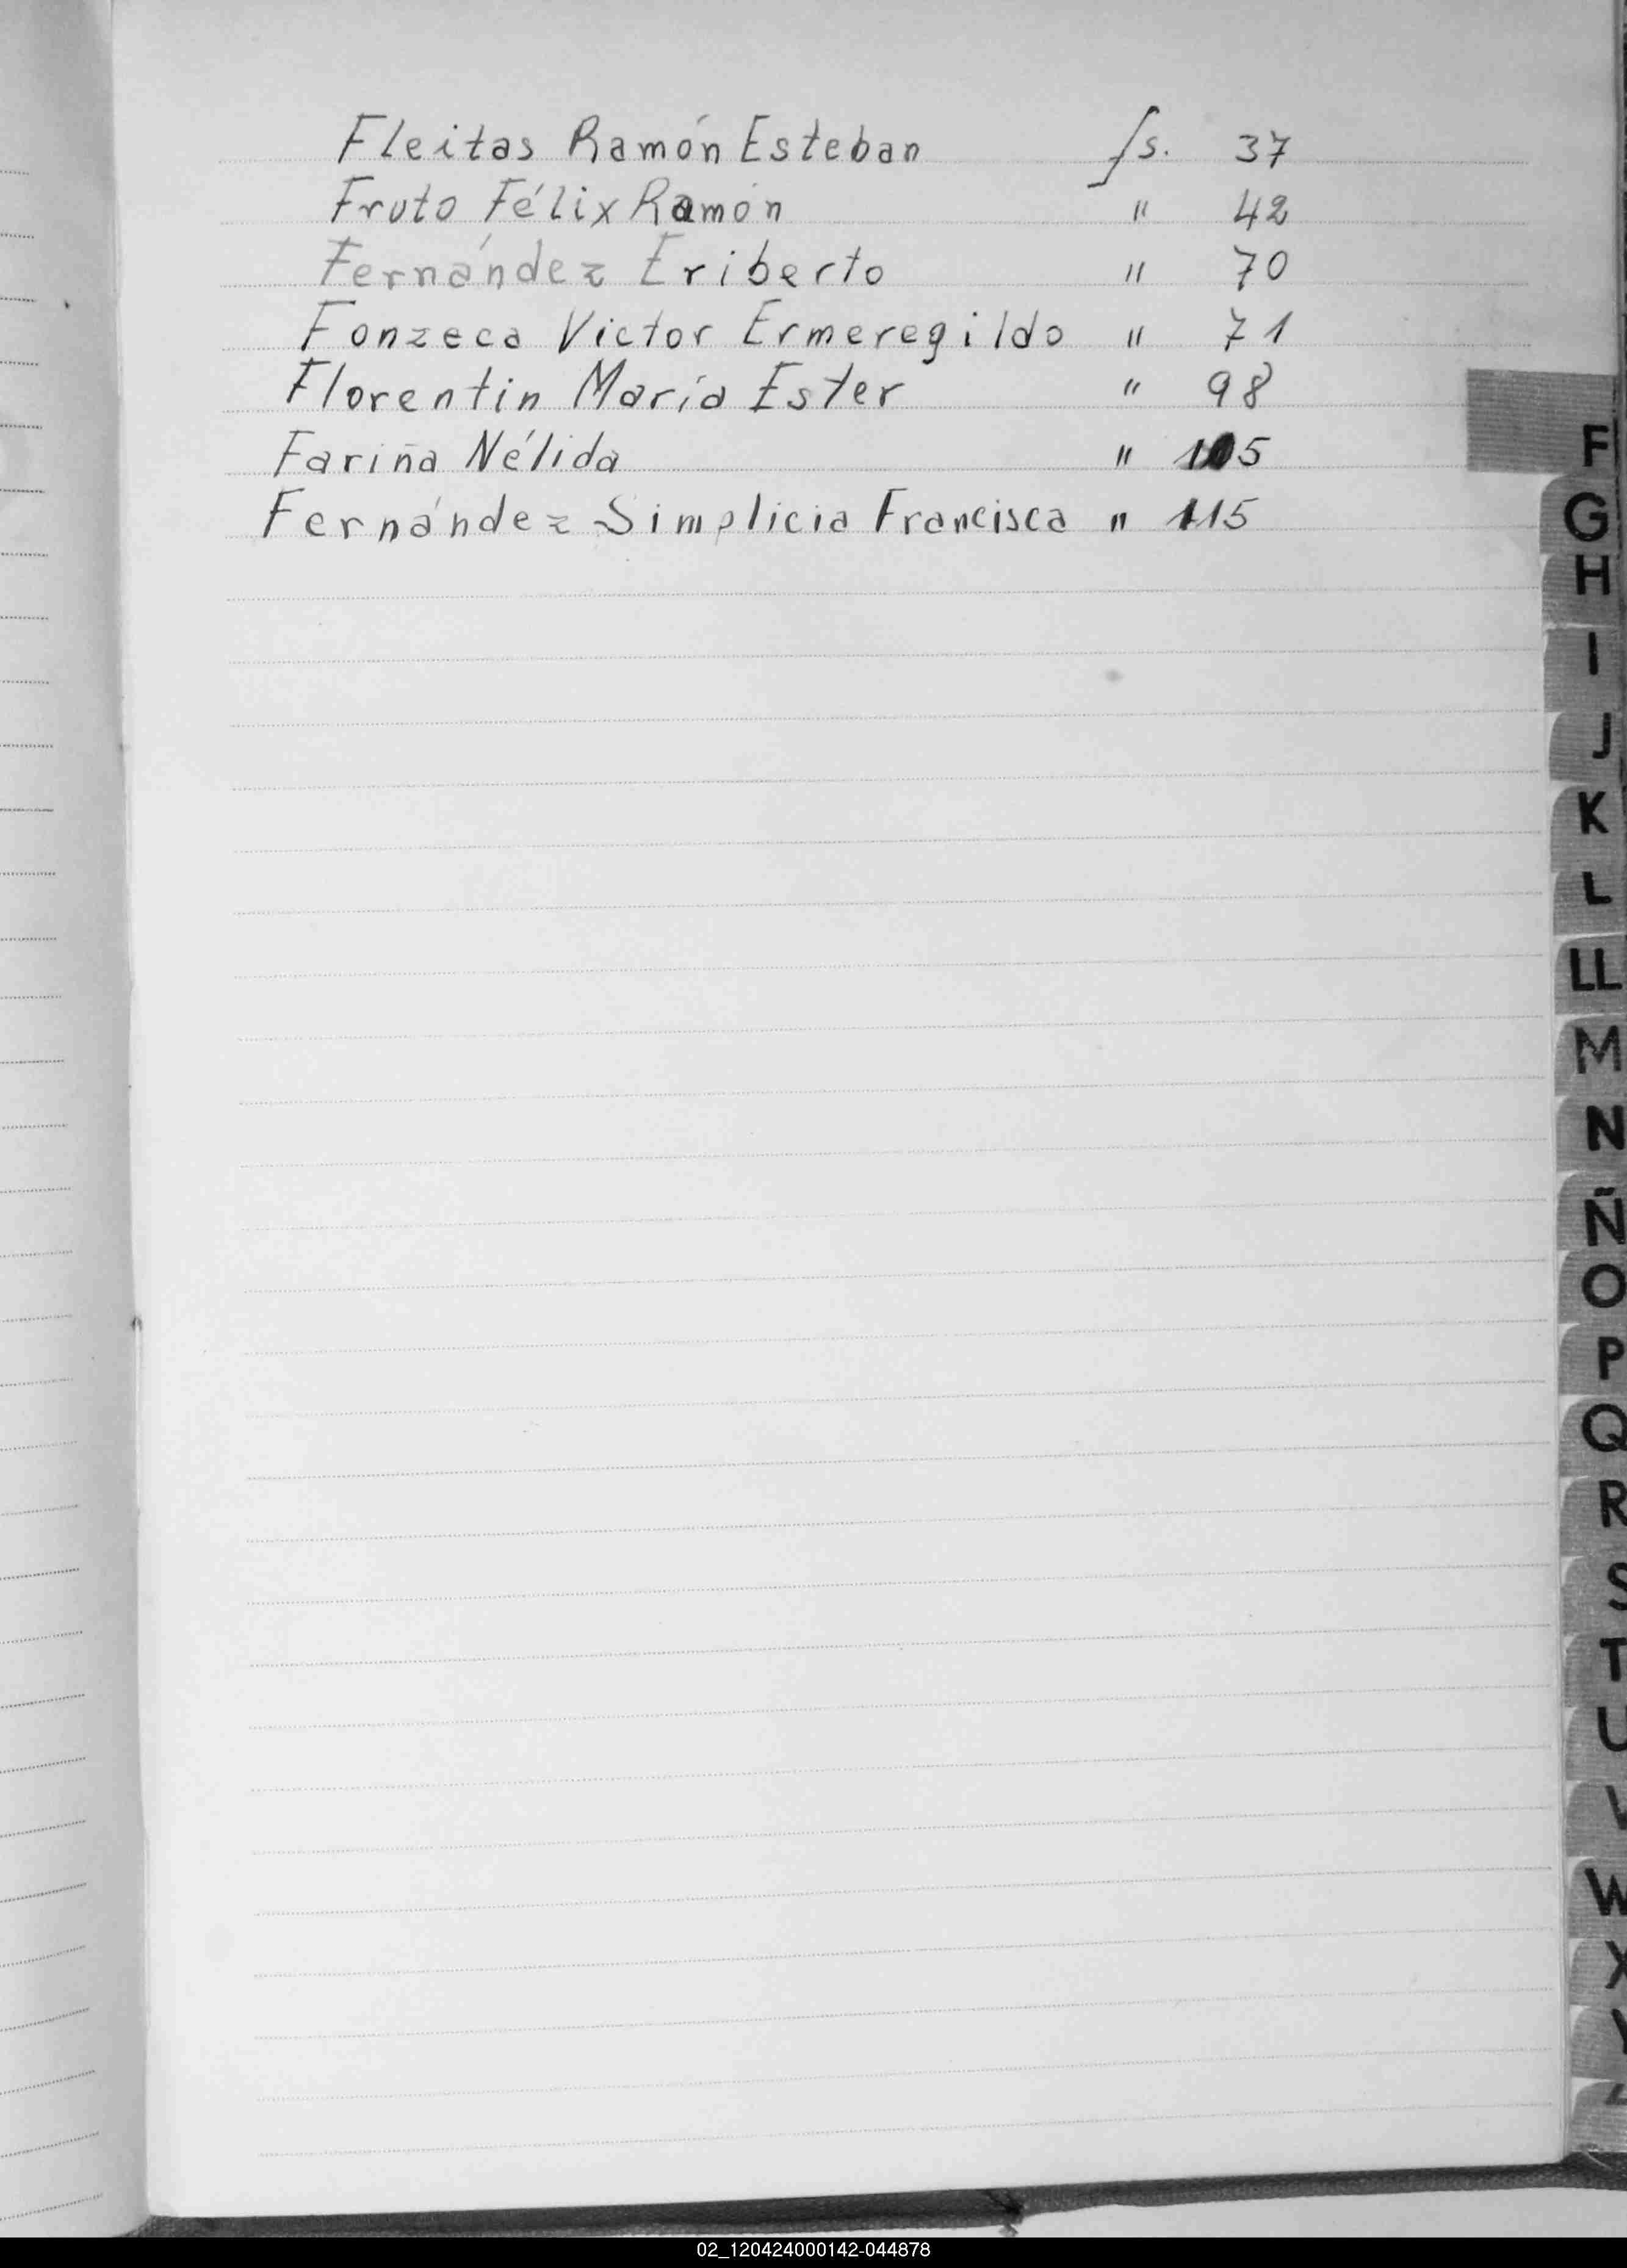 Fleitas Ramón Esteban fs. 37
Fruto Félix Ramón " 42
Fernández Eriberto " 70
Fonzeca Victor Ermeregildo " 71
Florentin María Ester " 98
Fariña Nélida " 105
Fernández Simplicia Francisca " 115
F
G
H
I
J
K
L
LL
M
N
Ñ
O
P
Q
R
S
T
U
V
W
X
Y
02_120424000142-044878